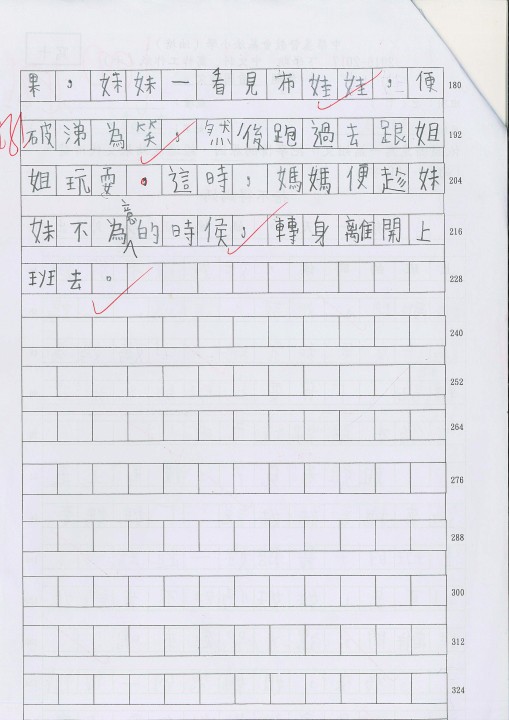 果，妹妹一看見布娃娃，便 180
破涕為笑，然後跑過去跟姐 192
姐玩耍。這時，媽媽便趁妹 204
妹不為意的時候，轉身離開上 216
班去。 228
240
252
264
276
288
300
312
324